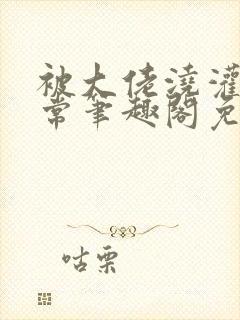 被大佬浇灌
常笔趣阁免
咕栗